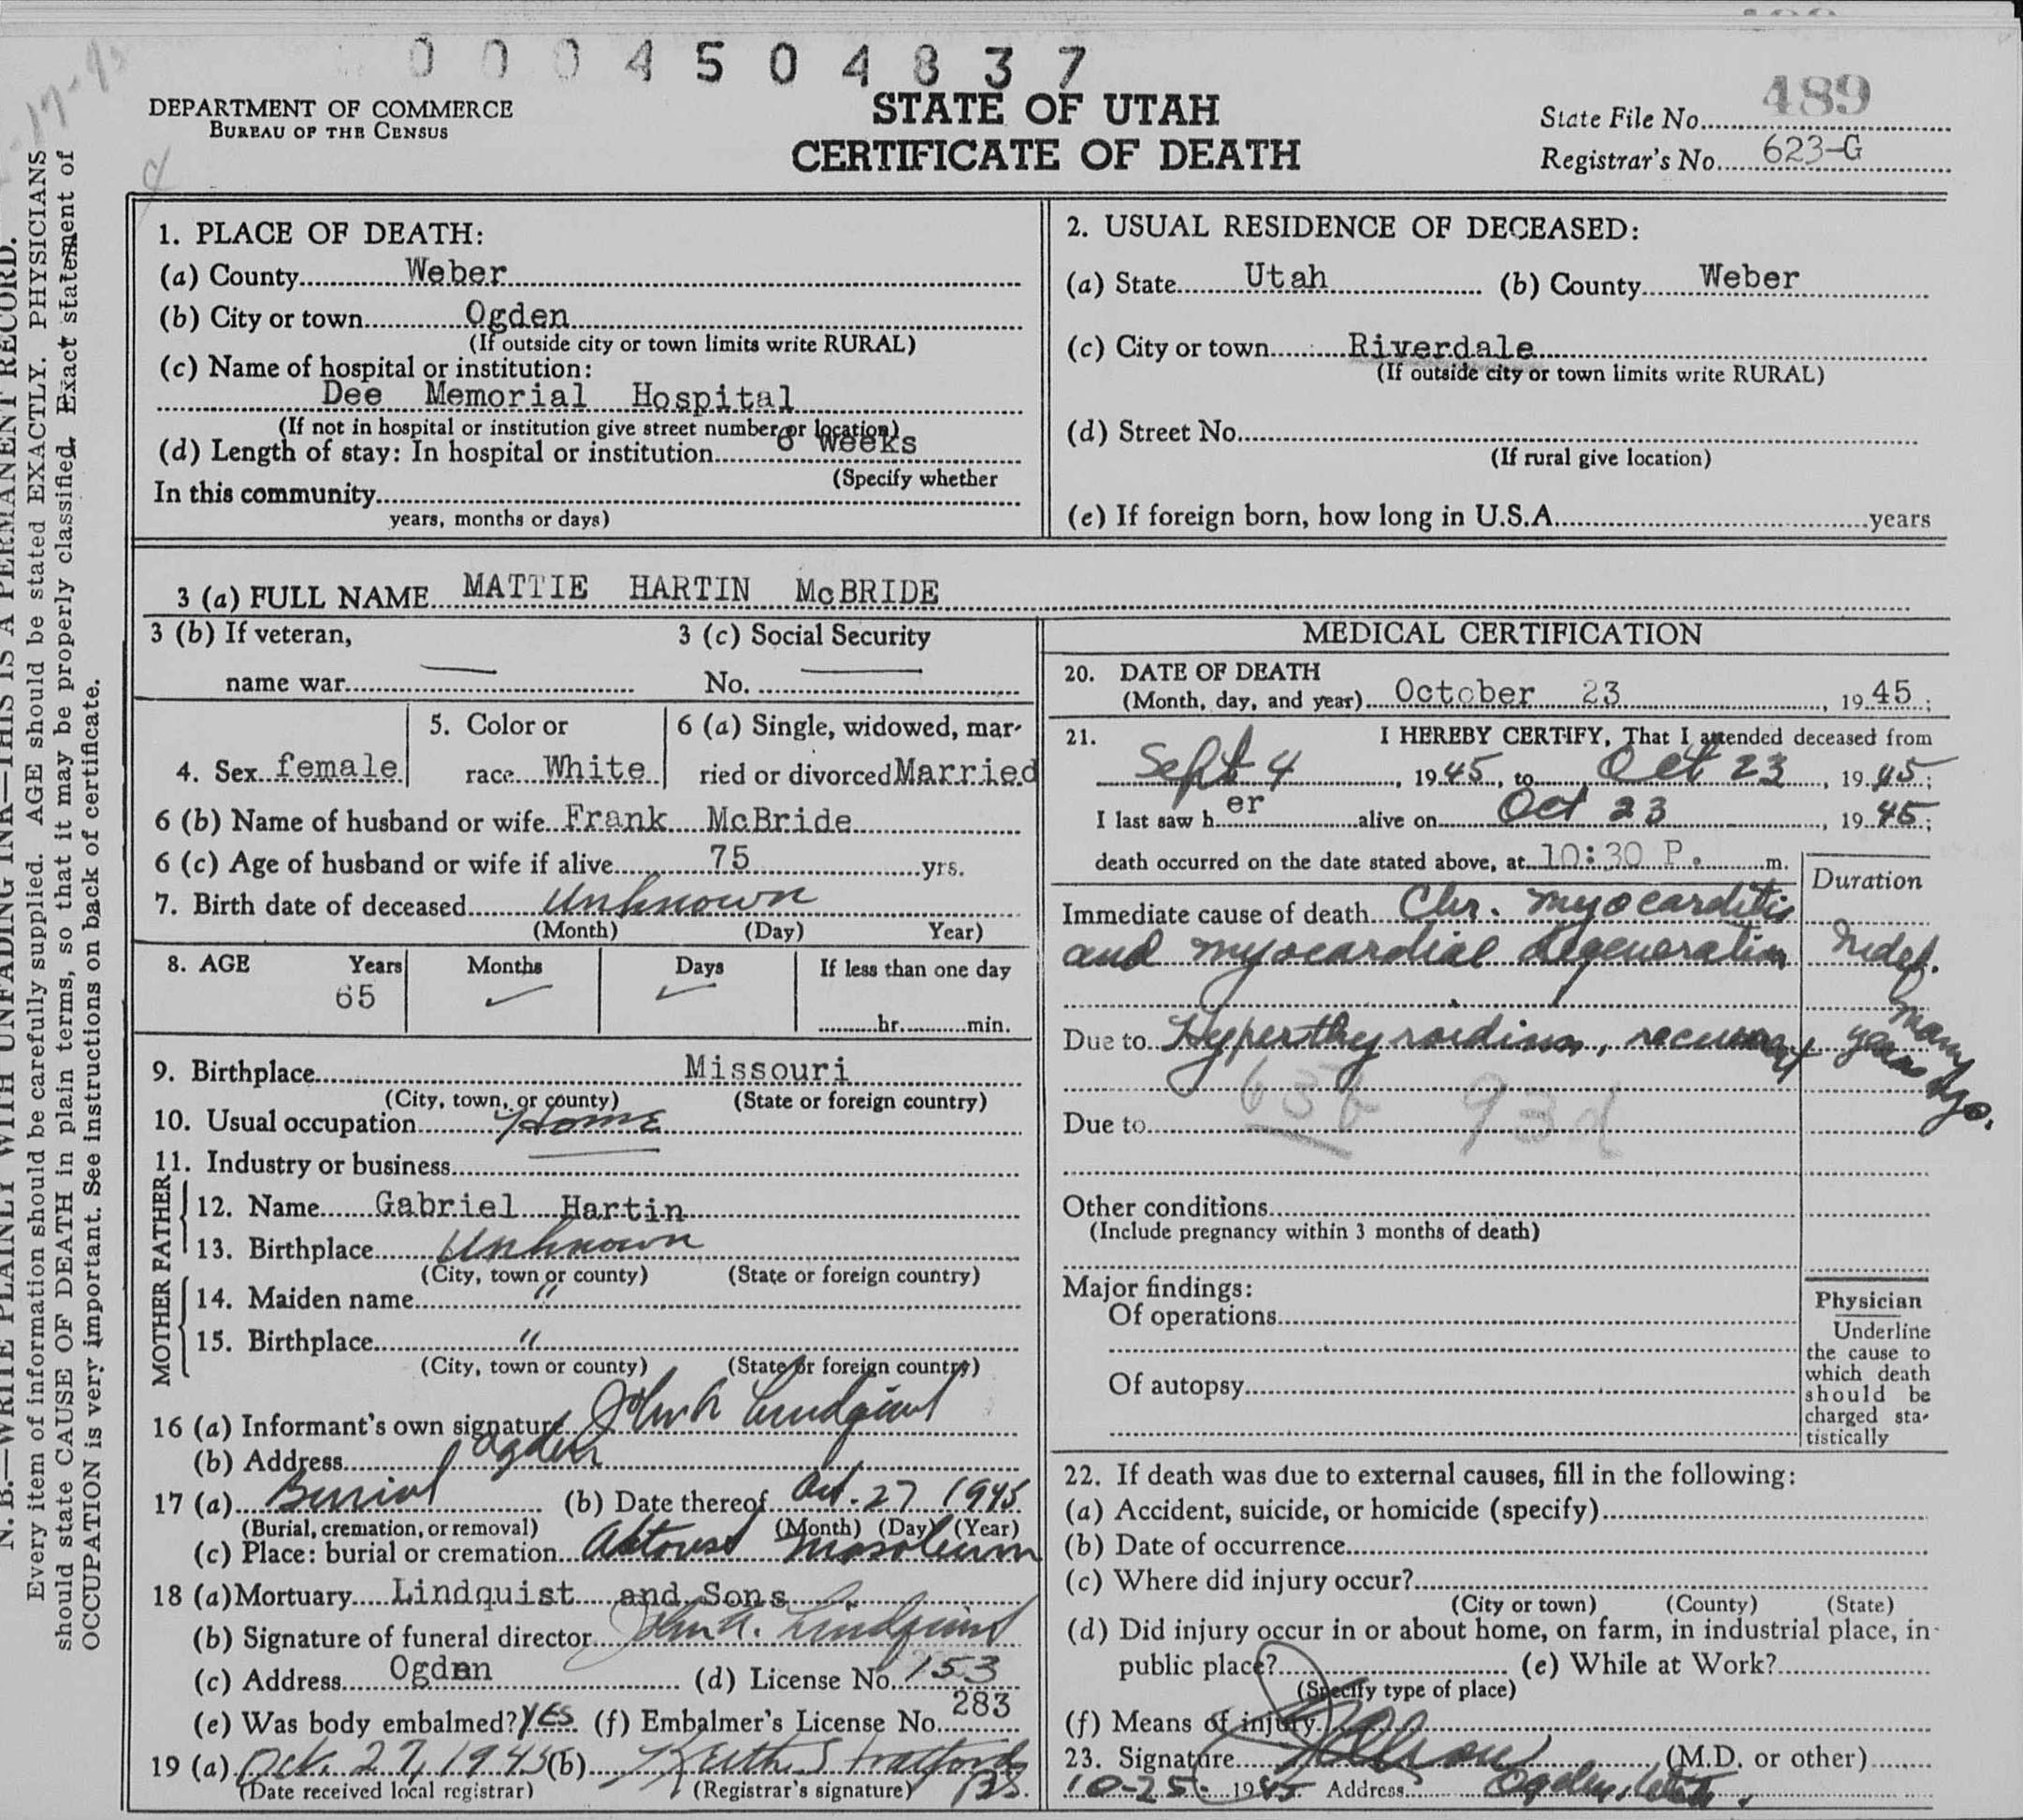 0004504837
DEPARTMENT OF COMMERCE
BUREAU OF THE CENSUS
STATE OF UTAH
CERTIFICATE OF DEATH
State File No. 489
Registrar's No. 623-G
N. B.—WRITE PLAINLY WITH UNFADING INK—THIS IS A PERMANENT RECORD.
Every item of information should be carefully supplied. AGE should be stated EXACTLY. PHYSICIANS
should state CAUSE OF DEATH in plain terms, so that it may be properly classified. Exact statement of
OCCUPATION is very important. See instructions on back of certificate.
1. PLACE OF DEATH:
(a) County Weber
(b) City or town Ogden
(If outside city or town limits write RURAL)
(c) Name of hospital or institution:
Dee Memorial Hospital
(If not in hospital or institution give street number or location)
(d) Length of stay: In hospital or institution 6 weeks
(Specify whether
In this community
years, months or days)
2. USUAL RESIDENCE OF DECEASED:
(a) State Utah (b) County Weber
(c) City or town Riverdale
(If outside city or town limits write RURAL)
(d) Street No.
(If rural give location)
(e) If foreign born, how long in U.S.A. years
3 (a) FULL NAME MATTIE HARTIN McBRIDE
3 (b) If veteran,
name war
3 (c) Social Security
No.
4. Sex female
5. Color or
race White
6 (a) Single, widowed, mar-
ried or divorced Married
6 (b) Name of husband or wife Frank McBride
6 (c) Age of husband or wife if alive 75 yrs.
7. Birth date of deceased Unknown
(Month) (Day) Year)
8. AGE Years Months Days If less than one day
65
hr. min.
9. Birthplace Missouri
(City, town, or county) (State or foreign country)
10. Usual occupation Home
11. Industry or business
FATHER
12. Name Gabriel Hartin
13. Birthplace Unknown
(City, town or county) (State or foreign country)
MOTHER
14. Maiden name "
15. Birthplace "
(City, town or county) (State or foreign country)
16 (a) Informant's own signature John A Lindquist
(b) Address Ogden
17 (a) Burial (b) Date thereof Oct. 27 1945
(Burial, cremation, or removal) (Month) (Day) (Year)
(c) Place: burial or cremation Mosoleum
18 (a) Mortuary Lindquist and Sons
(b) Signature of funeral director John A. Lindquist
(c) Address Ogden (d) License No. 153
(e) Was body embalmed? YES (f) Embalmer's License No. 283
19 (a) Oct. 27, 1945 (b) Keith Stratford
(Date received local registrar) (Registrar's signature)
MEDICAL CERTIFICATION
20. DATE OF DEATH
(Month, day, and year) October 23, 1945;
21. I HEREBY CERTIFY, That I attended deceased from
Sept 4, 1945, to Oct 23, 1945;
I last saw her alive on Oct 23, 1945;
death occurred on the date stated above, at 10:30 P. m.
Duration
Immediate cause of death Chr. myocarditis
and myocardial degeneration Indef.
Due to Hyperthyroidism, recurrent many years ago.
63b 93d
Due to
Other conditions
(Include pregnancy within 3 months of death)
Major findings:
Of operations
Of autopsy
Physician
Underline
the cause to
which death
should be
charged sta-
tistically
22. If death was due to external causes, fill in the following:
(a) Accident, suicide, or homicide (specify)
(b) Date of occurrence
(c) Where did injury occur?
(City or town) (County) (State)
(d) Did injury occur in or about home, on farm, in industrial place, in
public place? (e) While at Work?
(Specify type of place)
(f) Means of injury
23. Signature (M.D. or other)
10-25- 1945 Address Ogden, Utah.